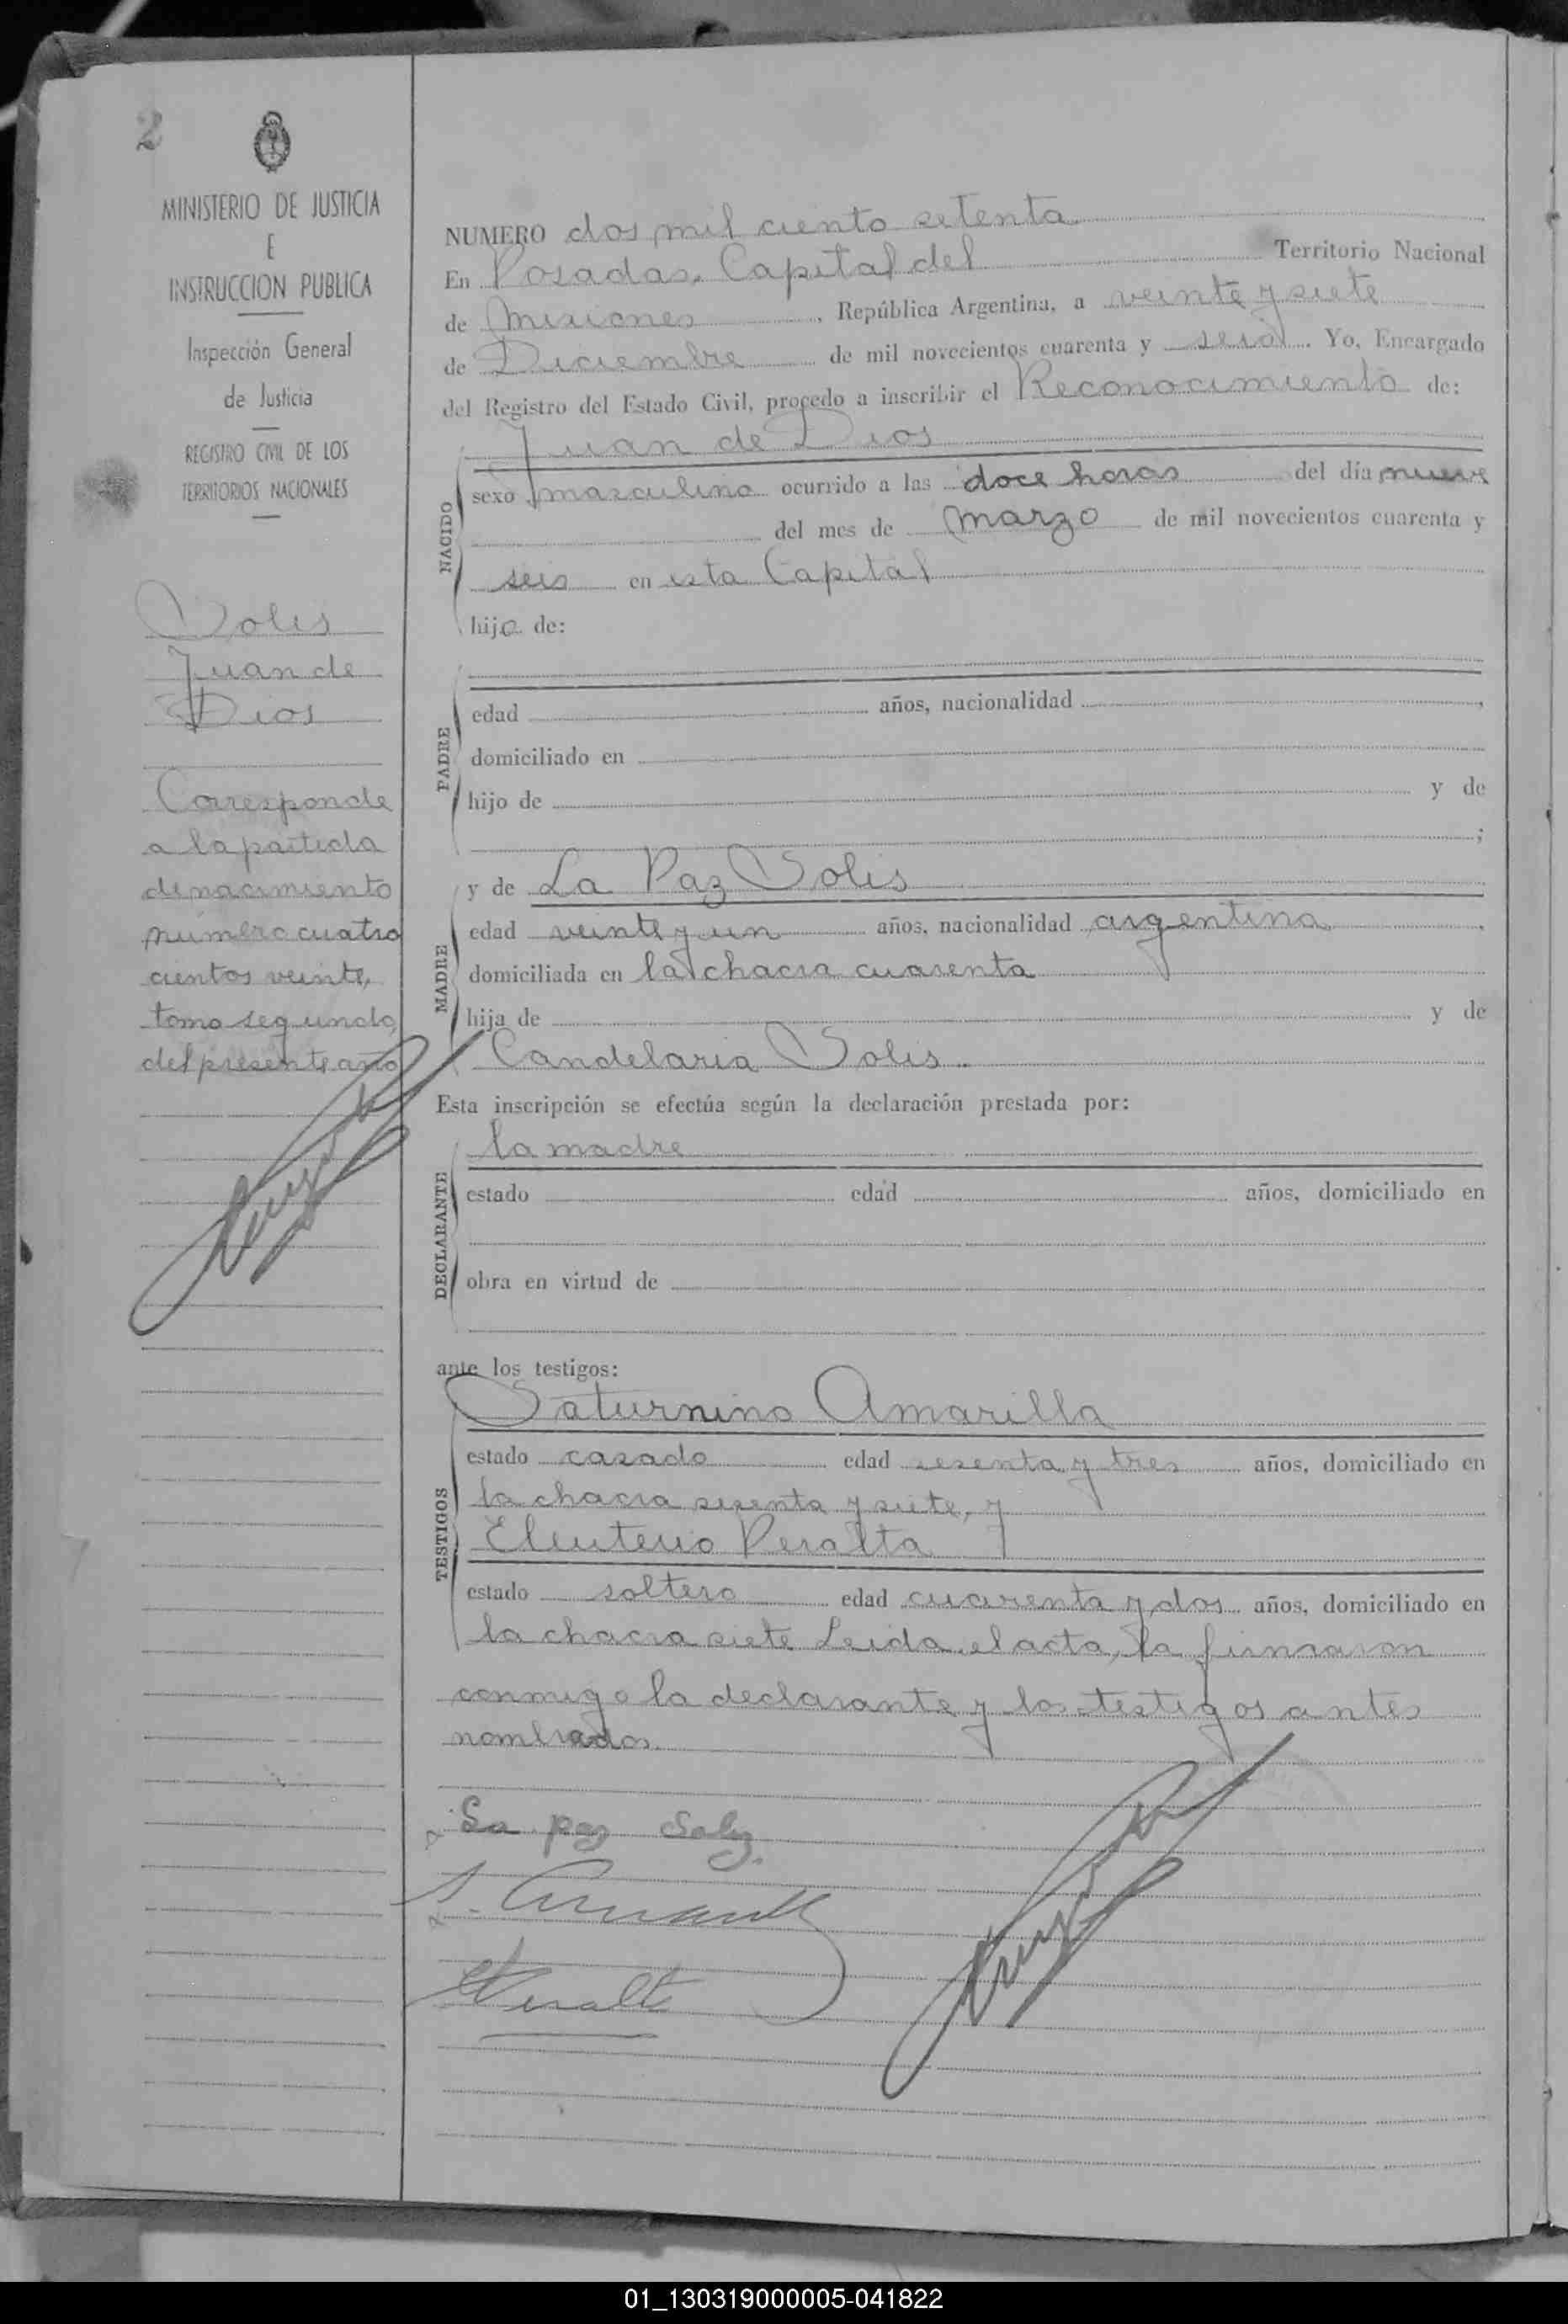 2
MINISTERIO DE JUSTICIA
E
INSTRUCCION PUBLICA
Inspección General
de Justicia
REGISTRO CIVIL DE LOS
TERRITORIOS NACIONALES
Solis
Juan de
Dios
Corresponde
a la partida
de nacimiento
número cuatro
cientos veinte,
tomo segundo,
del presente año
NUMERO dos mil ciento setenta
En Posadas, Capital del Territorio Nacional
de Misiones, República Argentina, a veinte y siete
de Diciembre de mil novecientos cuarenta y seis. Yo, Encargado
del Registro del Estado Civil, procedo a inscribir el Reconocimiento de:
Juan de Dios
NACIDO
sexo masculino ocurrido a las doce horas del día nueve
del mes de Marzo de mil novecientos cuarenta y
seis en esta Capital
hijo de:
PADRE
edad años, nacionalidad ,
domiciliado en
hijo de y de
;
MADRE
y de La Paz Solis
edad veinte y un años, nacionalidad argentina,
domiciliada en la chacra cuarenta
hija de y de
Candelaria Solis.
Esta inscripción se efectúa según la declaración prestada por:
DECLARANTE
la madre
estado edad años, domiciliado en
obra en virtud de
ante los testigos:
TESTIGOS
Saturnino Amarilla
estado casado edad sesenta y tres años, domiciliado en
la chacra sesenta y siete, y
Eleuterio Peralta
estado soltero edad cuarenta y dos años, domiciliado en
la chacra siete Leida el acta, la firmaron
conmigo la declarante y los testigos antes
nombrados.
La paz Soliz.
S. Amarilla
EPeralta
01_130319000005-041822